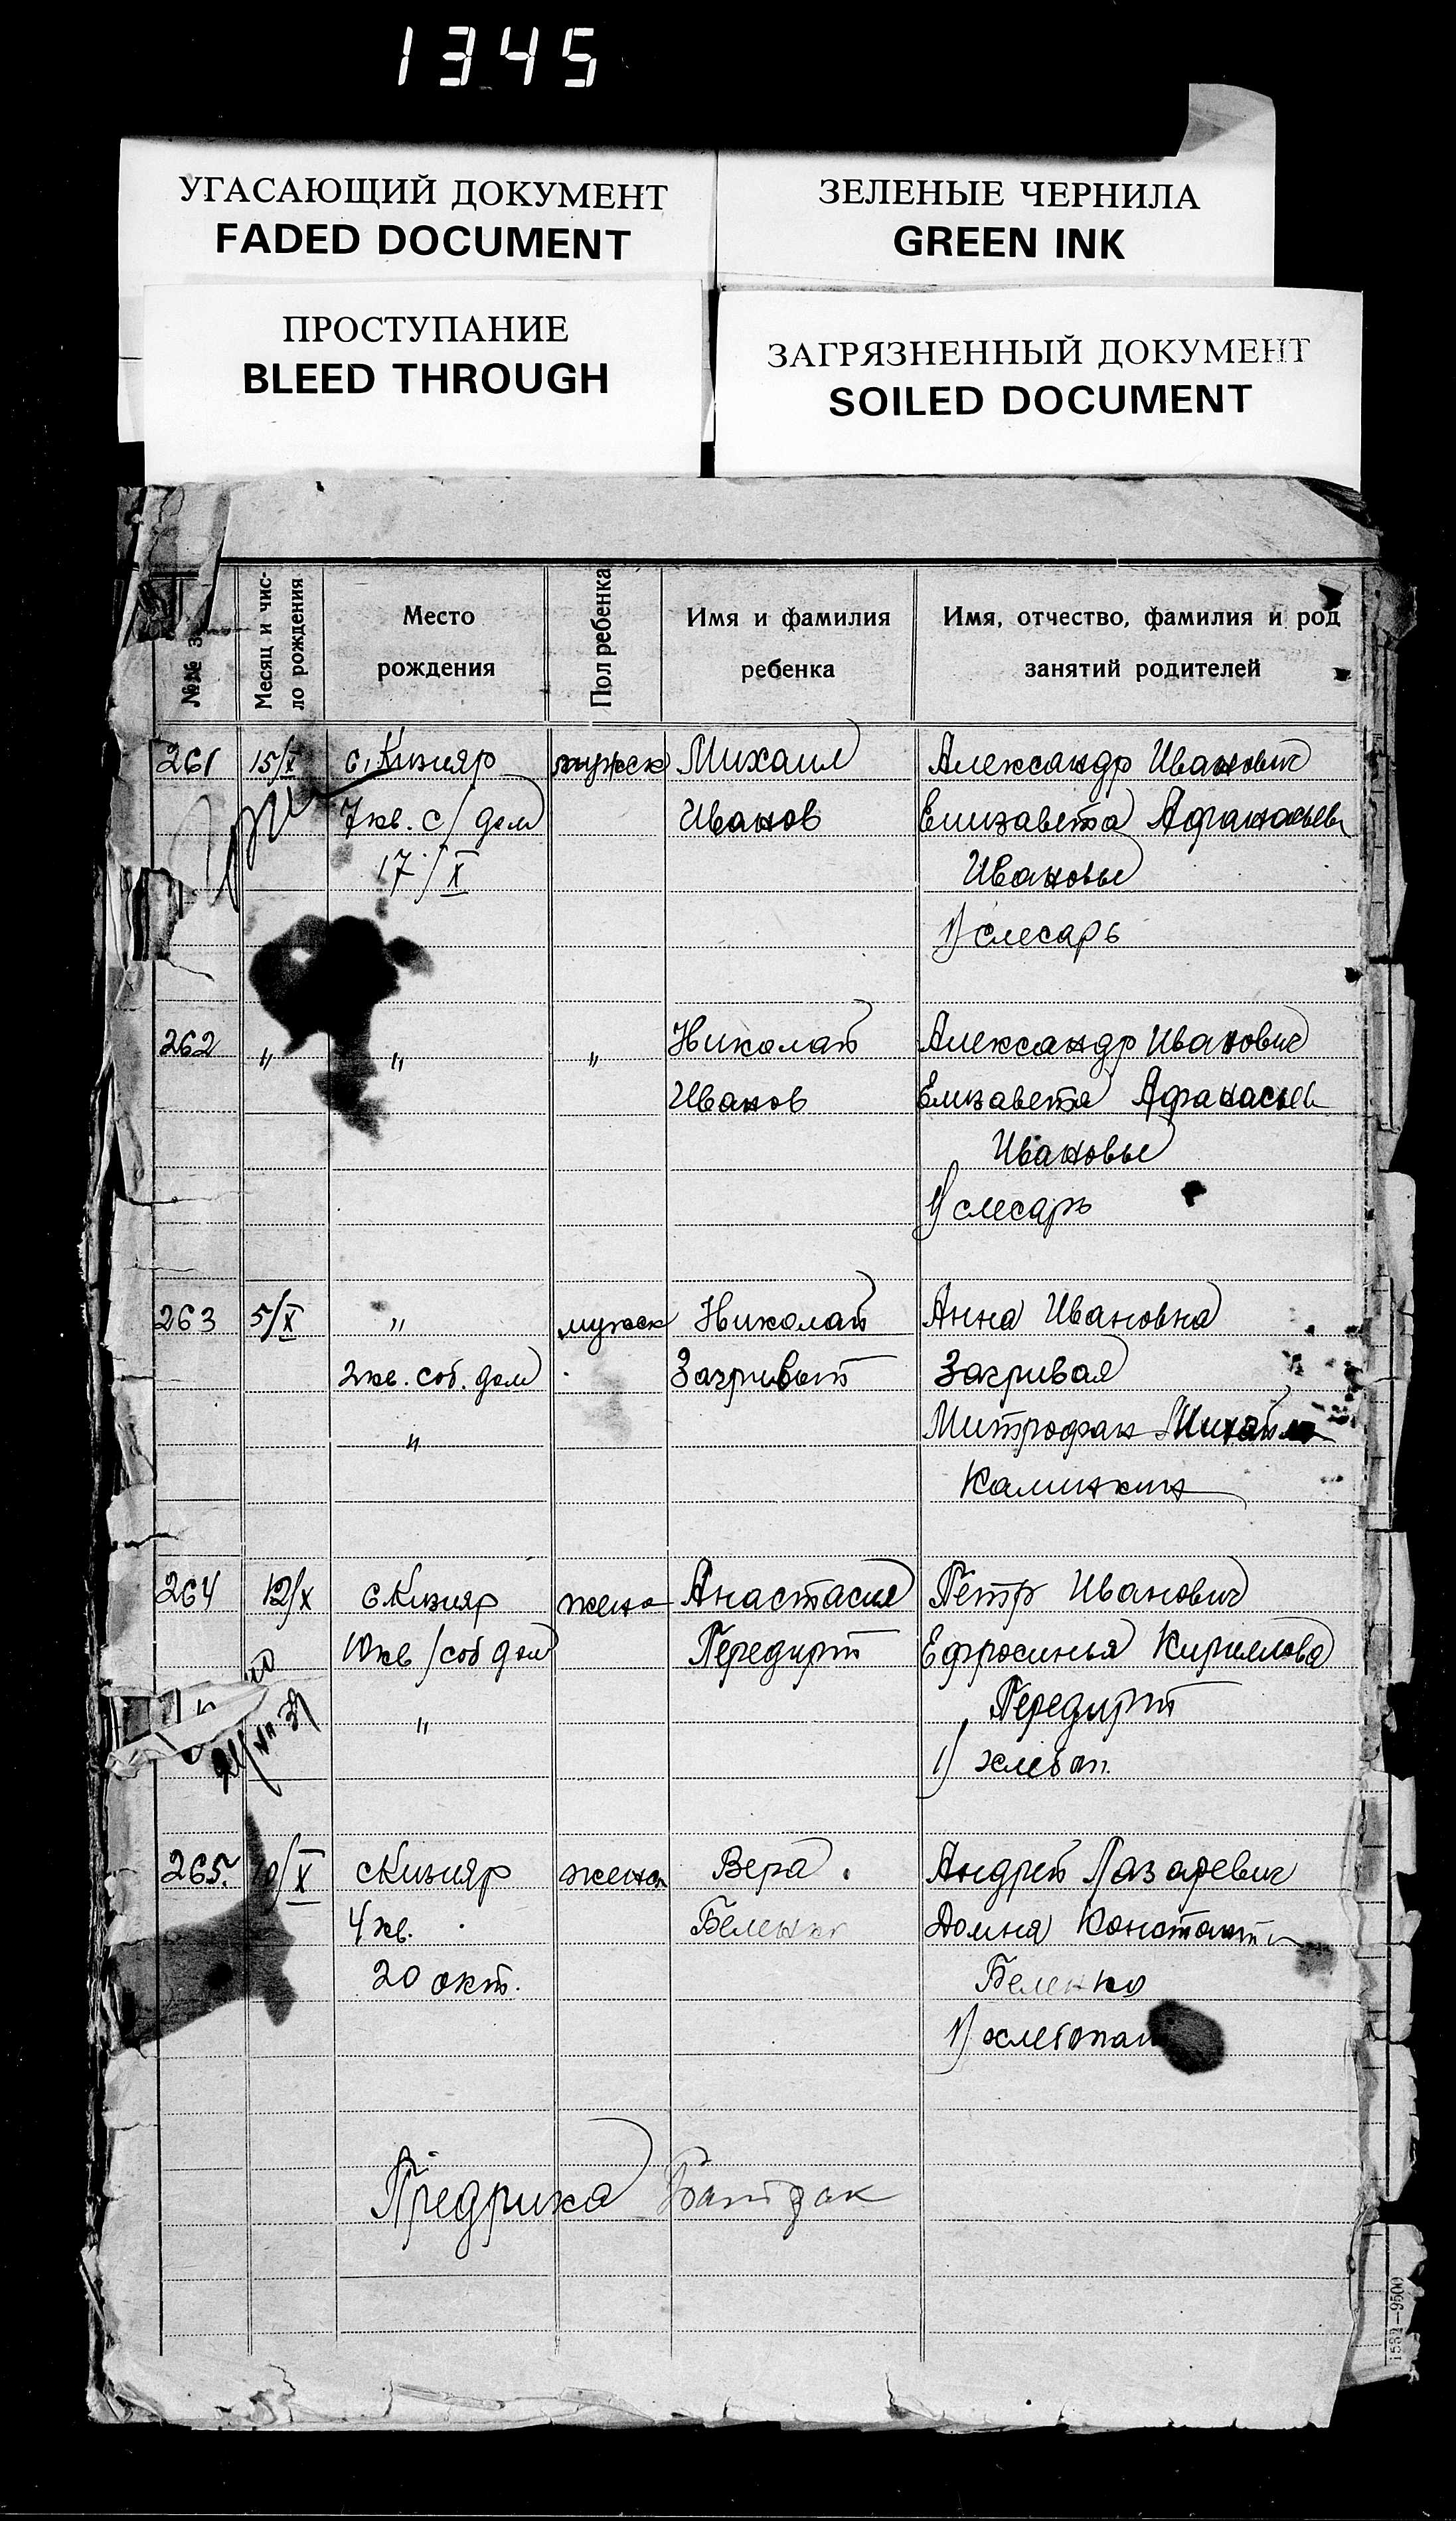 1345
УГАСАЮЩИЙ ДОКУМЕНТ
FADED DOCUMENT
ЗЕЛЕНЫЕ ЧЕРНИЛА
GREEN INK
ПРОСТУПАНИЕ
BLEED THROUGH
ЗАГРЯЗНЕННЫЙ ДОКУМЕНТ
SOILED DOCUMENT
№№ Месяц и чис- Место Пол ребенка Имя и фамилия Имя, отчество, фамилия и род
ло рождения рождения ребенка занятий родителей
261 15/X с. Кизияр мужск Михаил Александр Иванович
7 кв. с/дом Иванов Елизавета Афанасьев
17/X Ивановы
1) слесарь
262 " " " Николай Александр Иванович
Иванов Елизавета Афанасьев
Ивановы
1) слесарь
263 5/X " мужск Николай Анна Ивановна
2 кв. соб. дом Загривый Загривая
" Митрофан Михайло
Калинкин
264 12/X с. Кизияр женс Анастасия Петр Иванович
10 кв/соб дом Передирий Ефросинья Кириллова
" Передирий
1) хлебоп.
265. 10/X с Кизияр женск Вера Андрей Лазаревич
4 кв. Беленко Домна Константи
20 окт. Беленко
1) хлебопаш
1532—9500